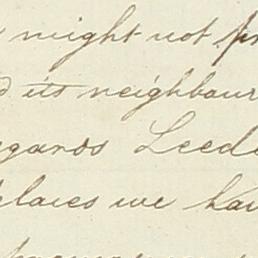 might not
its neighbour
regards Leeds
places we hav